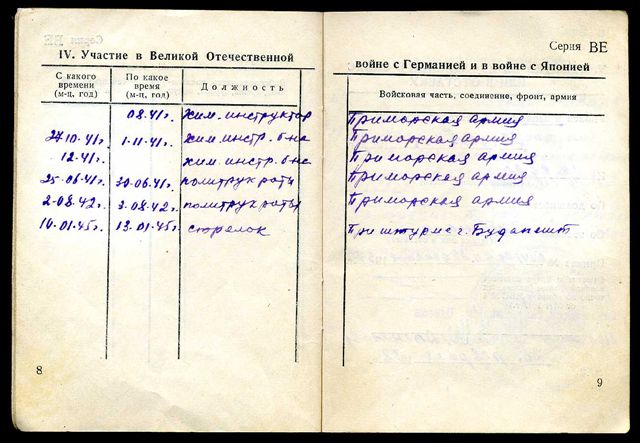 IV. Участие в Великой Отечественной
С какого времени (м-ц, год)
По какое время (м-ц, год)
Должность
08.41г. хим. инструктор
27.10.41г. 1-11-41г. хим. инстр. б-на
12.41г. хим. инстр. б-на
25-06-41г. 30-06-41г. политрук роты
2-08.42г. 3.08.42г. политрук роты
10.01.45г. 13.01.45г. стрелок
8
Серия ВЕ
войне с Германией и в войне с Японией
Войсковая часть, соединение, фронт, армия
Приморская армия
Приморская армия
Приморская армия
Приморская армия
Приморская армия
При штурме г. Будапешт
9